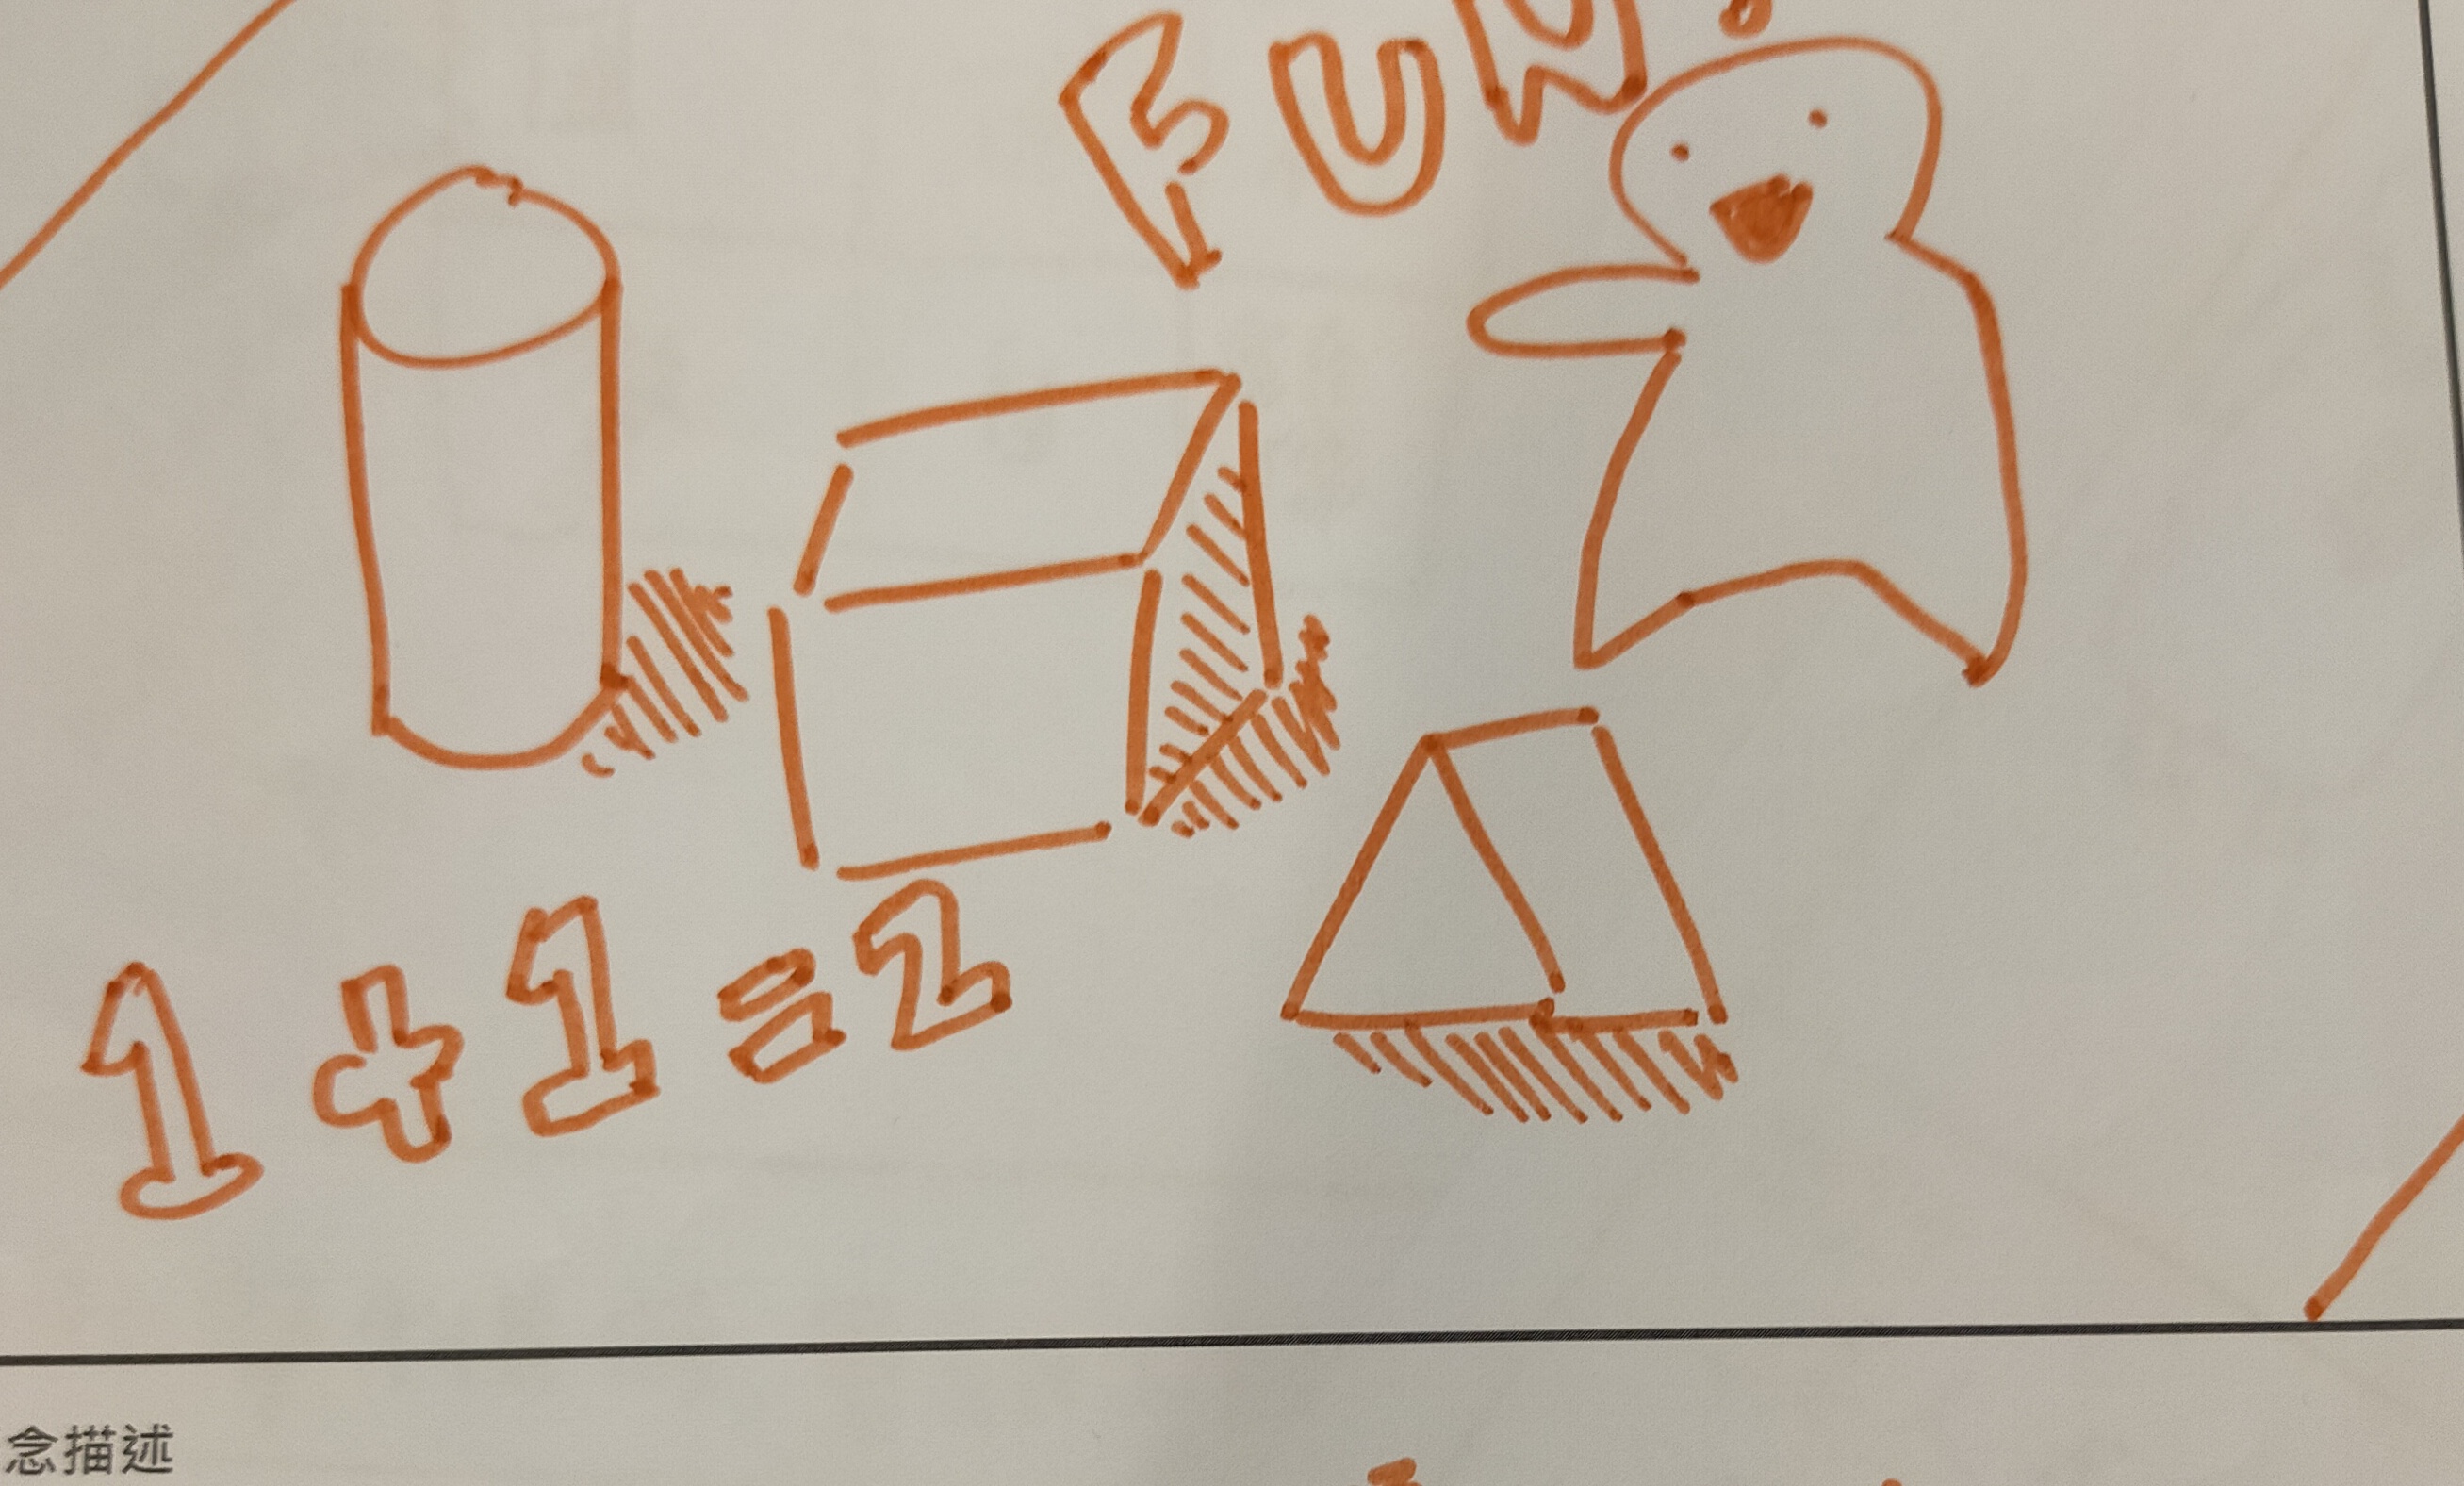 FUN!
1+1=2
念描述